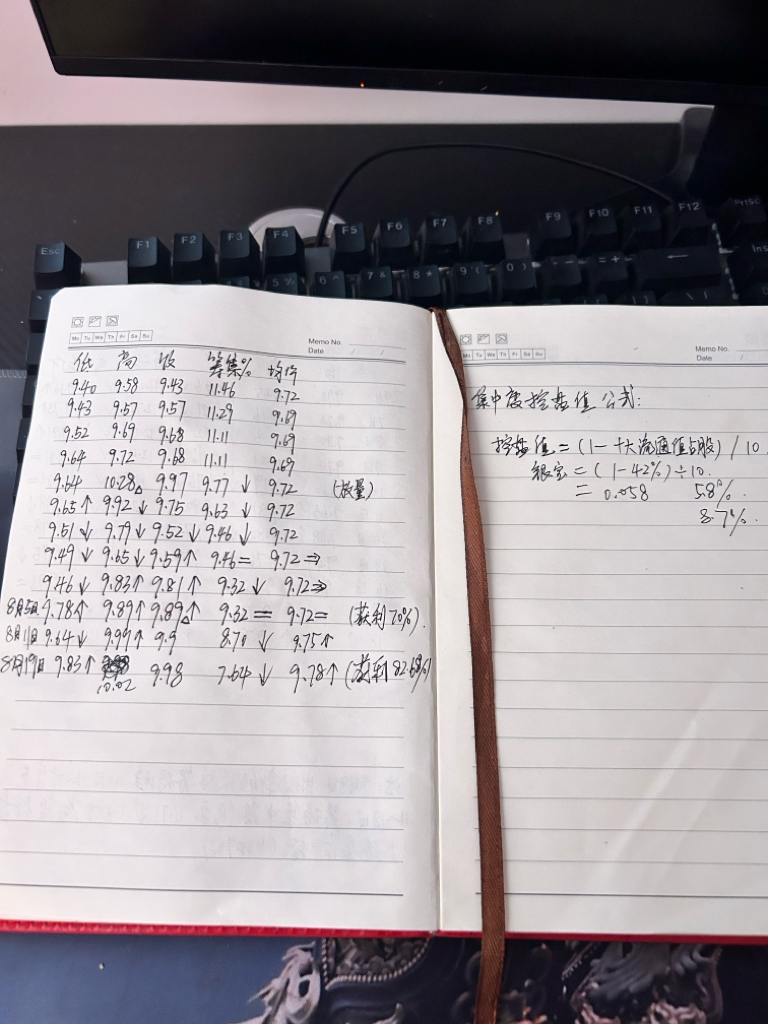 Esc F1 F2 F3 F4 F5 F6 F7 F8 F9 F10 F11 F12 PrtSc
Ins
5% 6 7& 8* 9( 0) - =+ ←
Mo Tu We Th Fr Sa Su
Memo No.
Date / /
低 高 收 筹集% 均价
9.40 9.58 9.43 11.46 9.72
9.43 9.57 9.57 11.29 9.69
9.52 9.69 9.68 11.11 9.69
9.64 9.72 9.68 11.11 9.69
9.64 10.28△ 9.97 9.77 ↓ 9.72 (放量)
9.65↑ 9.92↓ 9.75 9.63 ↓ 9.72
9.51↓ 9.79↓ 9.52↓ 9.46 ↓ 9.72
9.49↓ 9.65↓ 9.59↑ 9.46= 9.72⇒
9.46↓ 9.83↑ 9.81↑ 9.32↓ 9.72⇒
8月5日 9.78↑ 9.89↑ 9.89△↑ 9.32= 9.72= (获利70%).
8月11日 9.64↓ 9.99↑ 9.9 8.70 ↓ 9.75↑
8月19日 9.83↑ 10.02 9.98 7.64↓ 9.78↑ (获利82.68%)
Mo Tu We Th Fr Sa Su
Memo No.
Date /
集中度控盘值公式:
控盘值=(1-十大流通值占股)/10
银宝=(1-42%)÷10.
= 0.058 5.8%.
8.7%.